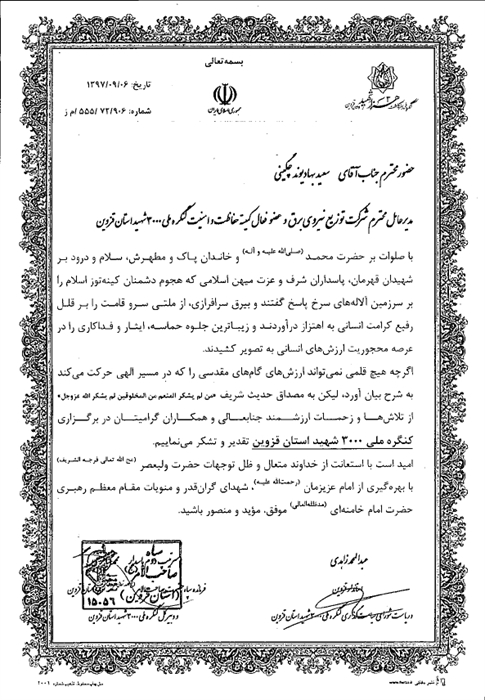 بسمه‌تعالی
تاریخ: ۱۳۹۷/۰۹/۰۶
جمهوری اسلامی ایران
شماره: ۵۵۵/۷۲/۹۰۶/م ز
حضور محترم جناب آقای سعید بهادیوند چگینی
مدیر عامل محترم شرکت توزیع نیروی برق و عضو فعال کمیته حفاظت و امنیت کنگره ملی ۳۰۰۰ شهید استان قزوین
با صلوات بر حضرت محمد (صلی‌الله علیه و آله) و خاندان پاک و مطهرش، سلام و درود بر
شهیدان قهرمان، پاسداران شرف و عزت میهن اسلامی که هجوم دشمنان کینه‌توز اسلام را
بر سرزمین آلاله‌های سرخ پاسخ گفتند و بیرق سرافرازی، از ملتی سرو قامت را بر قلل
رفیع کرامت انسانی به اهتزاز درآوردند و زیباترین جلوه حماسه، ایثار و فداکاری را در
عرصه محجوریت ارزش‌های انسانی به تصویر کشیدند.
اگرچه هیچ قلمی نمی‌تواند ارزش‌های گام‌های مقدسی را که در مسیر الهی حرکت می‌کند
به شرح بیان آورد، لیکن به مصداق حدیث شریف «من لم یشکر المنعم من المخلوقین لم یشکر الله عزوجل»
از تلاش‌ها و زحمات ارزشمند جنابعالی و همکاران گرامیتان در برگزاری
کنگره ملی ۳۰۰۰ شهید استان قزوین تقدیر و تشکر می‌نماییم.
امید است با استعانت از خداوند متعال و ظل توجهات حضرت ولیعصر (عج الله تعالی فرجه الشریف)
با بهره‌گیری از امام عزیزمان (رحمت‌الله علیه)، شهدای گران‌قدر و منویات مقام معظم رهبری
حضرت امام خامنه‌ای (مدظله‌العالی) موفق، مؤید و منصور باشید.
عبدالمحمد زاهدی
استاندار قزوین
و ریاست شورای سیاست‌گذاری کنگره ملی ۳۰۰۰ شهید استان قزوین
سپاه
صاحب الامر
(استان قزوین)
۱۵۰۵۶
فرمانده سپاه
و دبیر کل کنگره ملی ۳۰۰۰ شهید استان قزوین